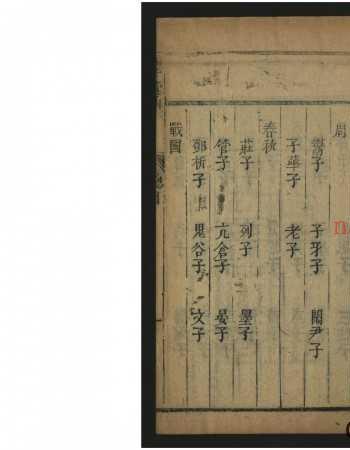 周
鬻子 子牙子 關尹子
子華子 老子
春秋
莊子 列子 墨子
管子 亢倉子 晏子
鄧析子 鬼谷子 文子
戰國